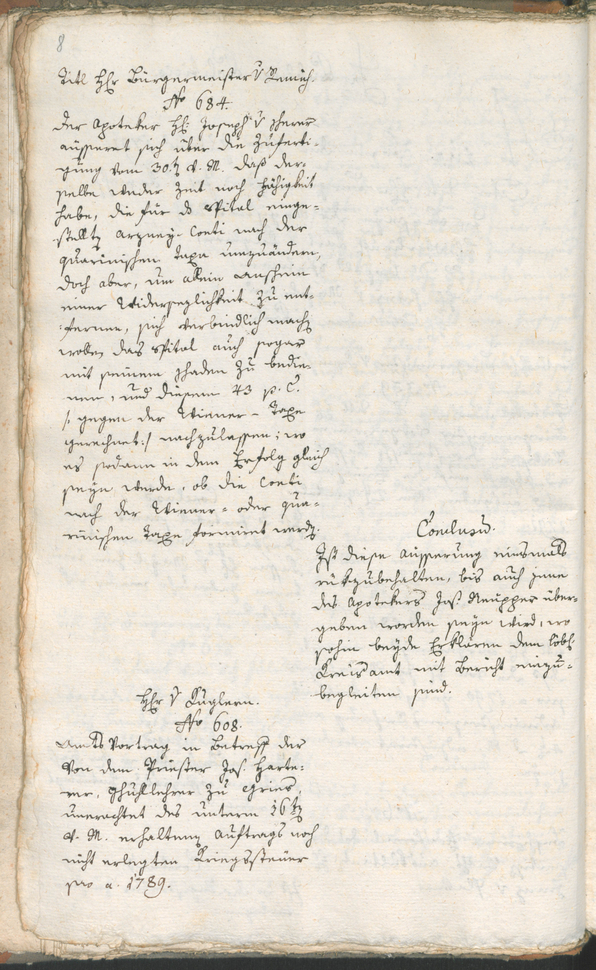 8
Titl Hr Bürgermeister v Remich.
No 684.
Der Apoteker H: Joseph v Scherer
äusseret sich über die Zuferti-
gung vom 30.t v. M. daß der-
selbe weder Zeit noch Fähigkeit
habe, die für das Spital einge-
stellte Arzney-Conti nach der
quarinischen Taxa umzuändern,
doch aber, um allein Anschein
einer Widerseglichkeit zu ent-
fernen, sich verbindlich mache
wolle, das Spital auch sogar
mit seinem Schaden zu bedie-
nen, und diesem 43 p. C.
/: gegen der Wiener-Taxe
gerechnet :/ nachzulassen; wo
es sodann in dem Erfolg gleich
seyn würde, ob die Conti
nach der Wiener- oder Qua-
rinischen Taxe formirt werde.
Conclusum.
Ist diese Äusserung niemals
rükzubehalten, bis auch jene
des Apotekers Jos. über-
geben worden seyn wird, wo
sohin beyde Erklären dem löbl.
Kreisamt mit Bericht einzu-
begleiten sind.
Hr v Kuglern.
No 608.
Amts Vortrag in Betreff der
von dem Priester Jos. Harte-
rer, Schullehrer zu Gries,
unerachtet des unterm 16t
v. M. erhaltenen Auftrags noch
nicht erlegten Kriegssteuer
pro a. 1789.